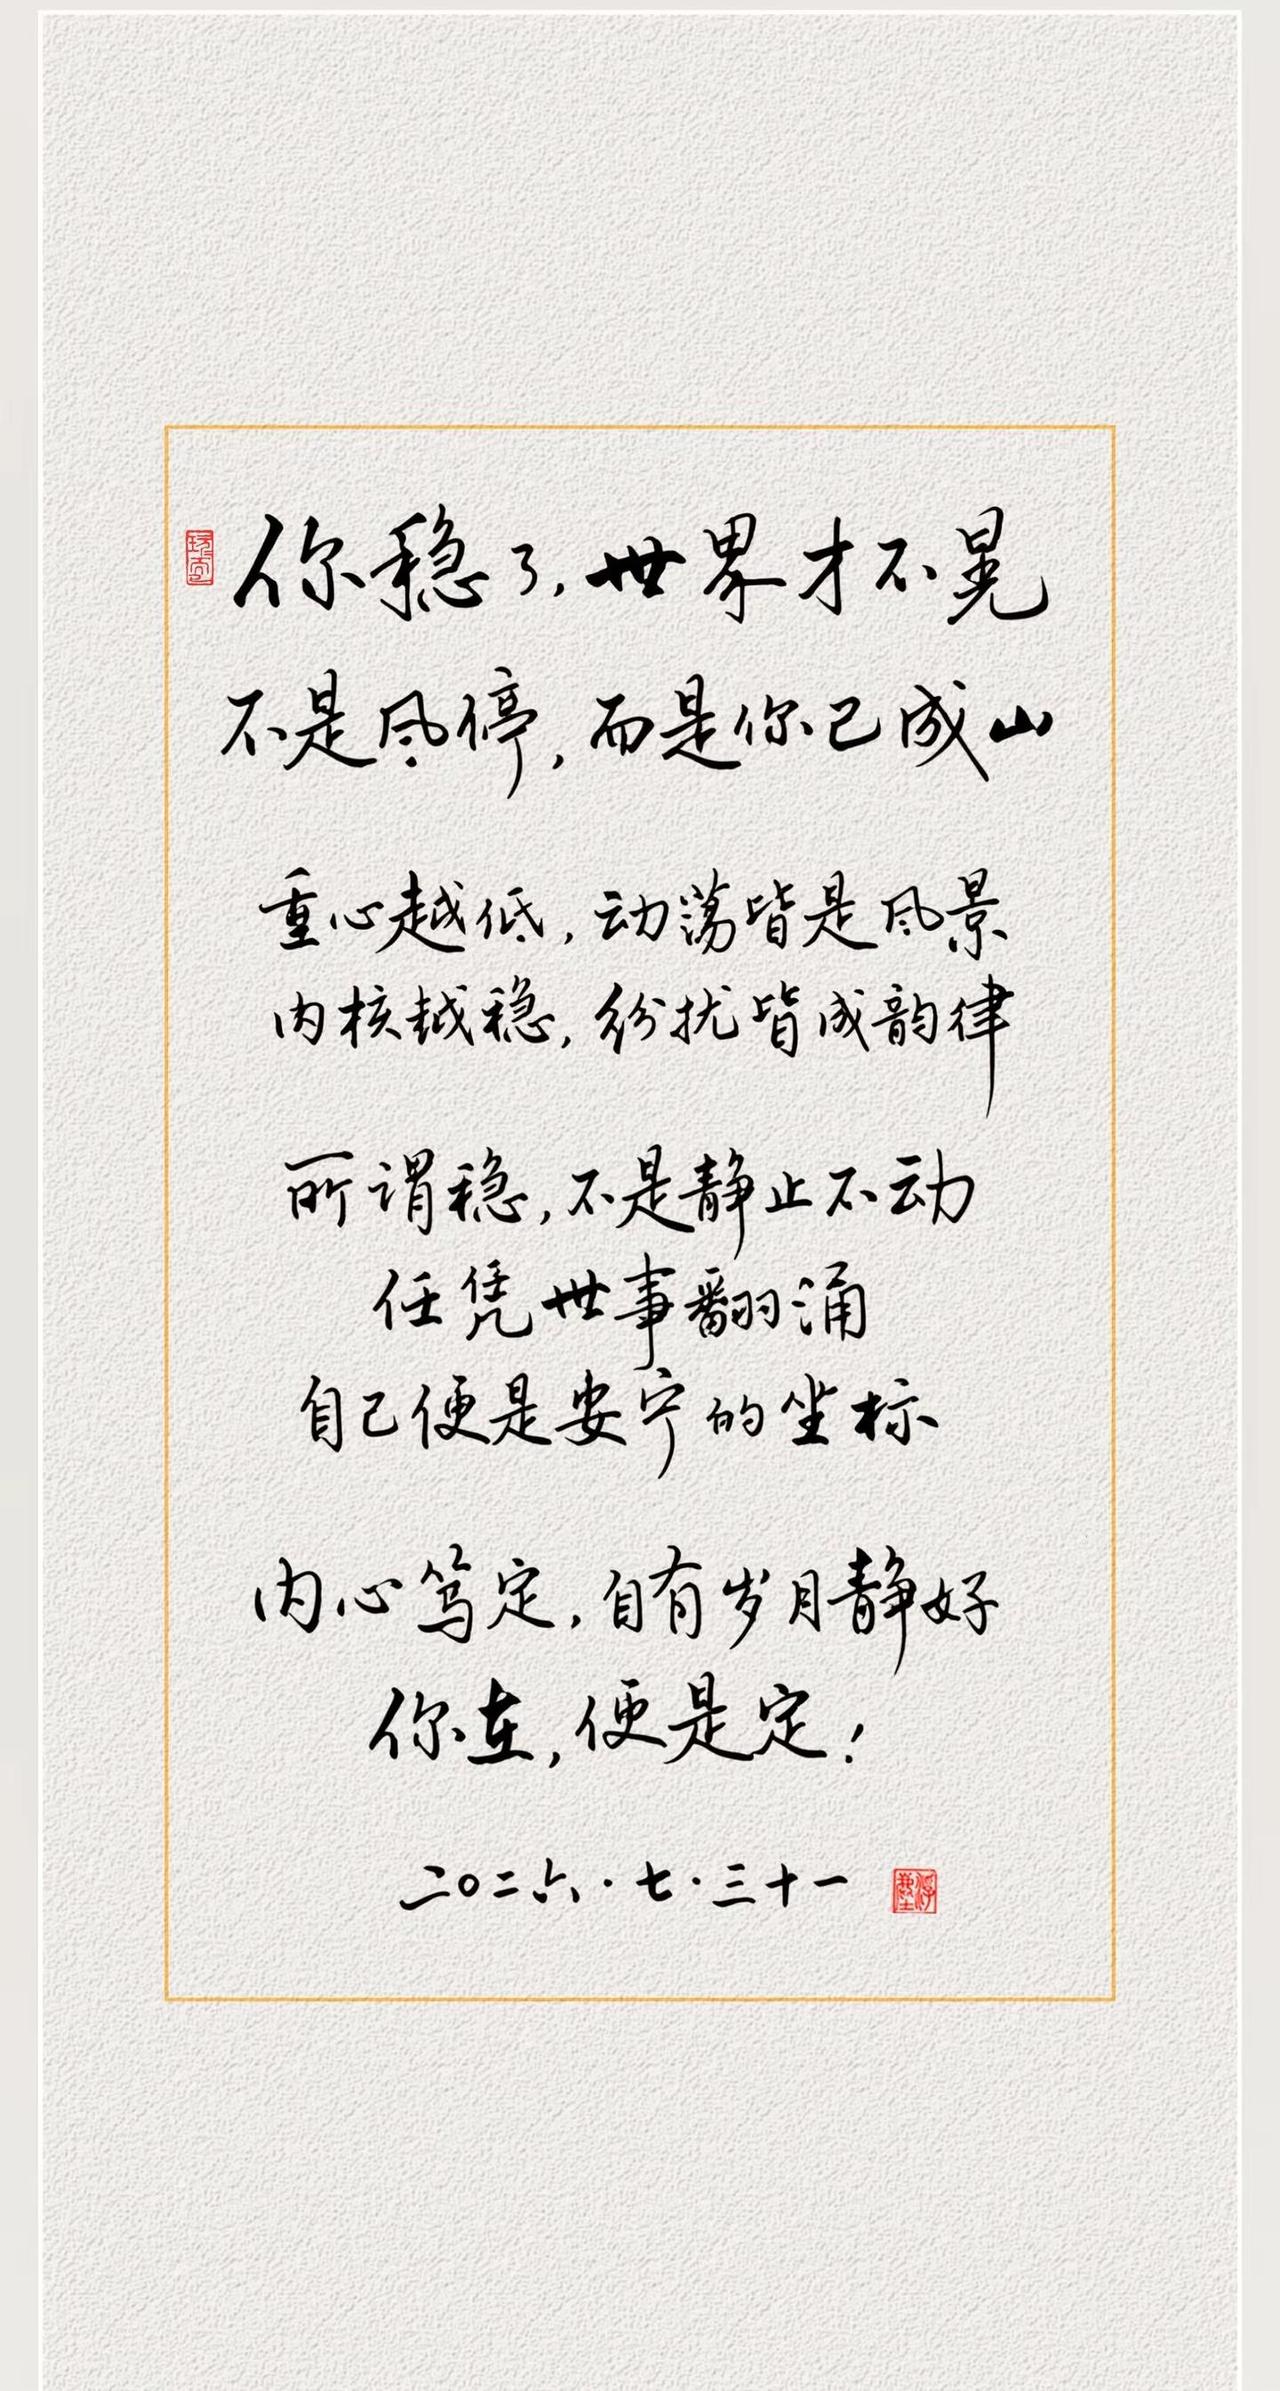 你稳了，世界才不晃
不是风停，而是你已成山
重心越低，动荡皆是风景
内核越稳，纷扰皆成韵律
所谓稳，不是静止不动
任凭世事翻涌
自己便是安宁的坐标
内心笃定，自有岁月静好
你在，便是定！
二〇二六·七·三十一